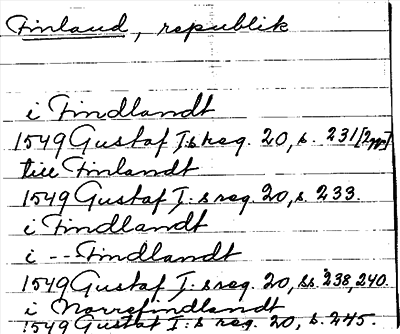 Finland, republik
i Findlandt
1549 Gustaf I:s reg. 20, s. 231 [2 ggr]
till Finlandt
1549 Gustaf I:s reg. 20, s. 233.
i Findlandt
i -- Findlandt
1549 Gustaf I:s reg. 20, ss. 238, 240.
i Norrefindlandt
1549 Gustaf I:s reg. 20, s. 245.